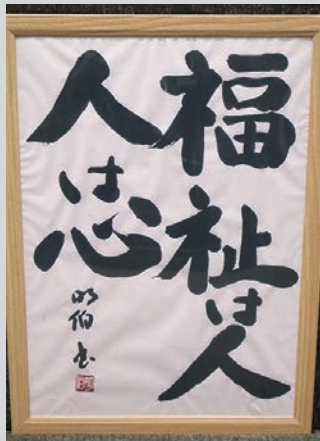 福祉は人
人は心
明伯書